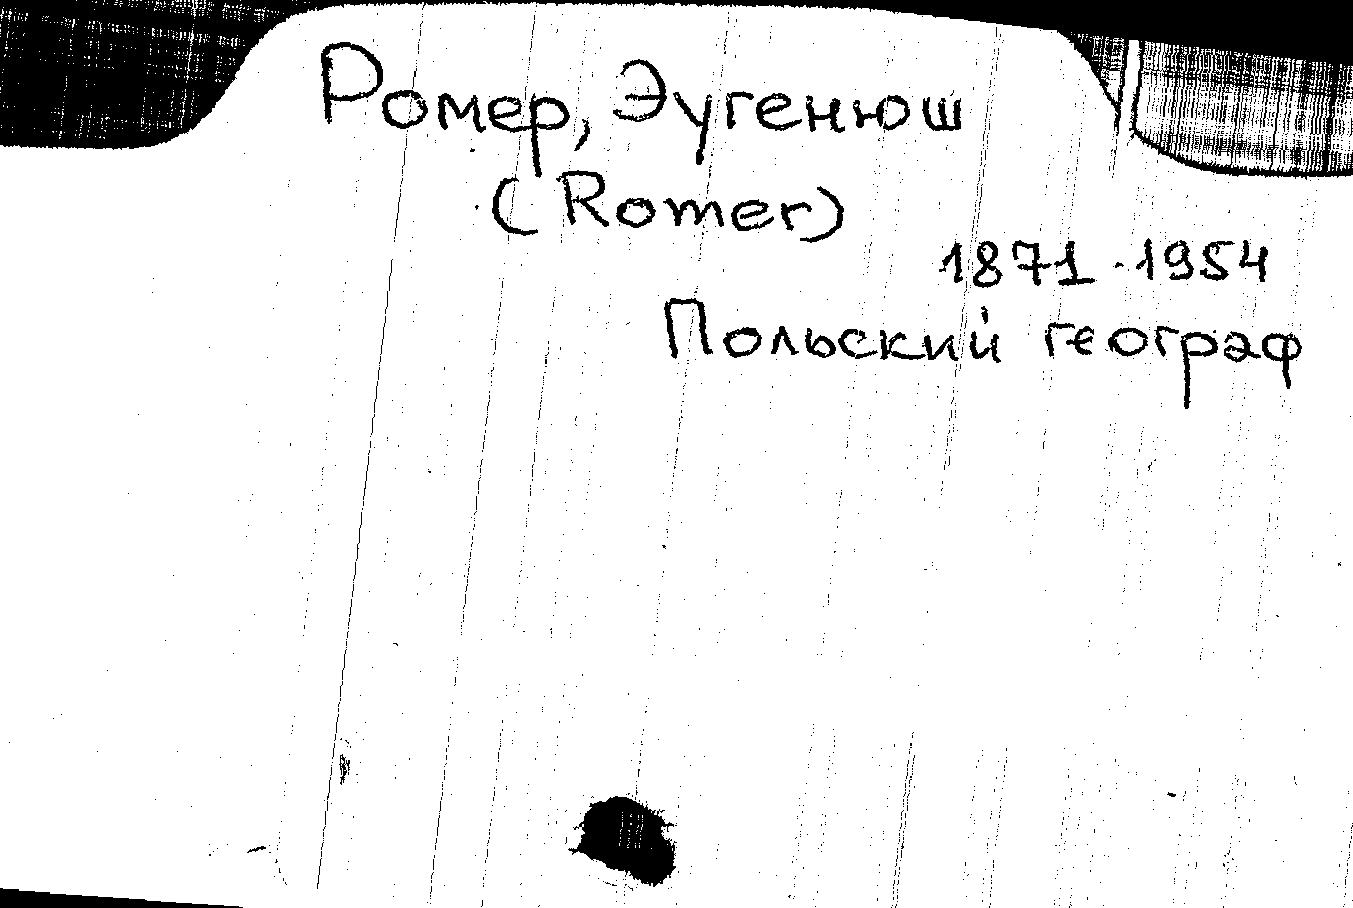 Ромер, Эугенюш
(Romer)
1871-1954
Польский географ